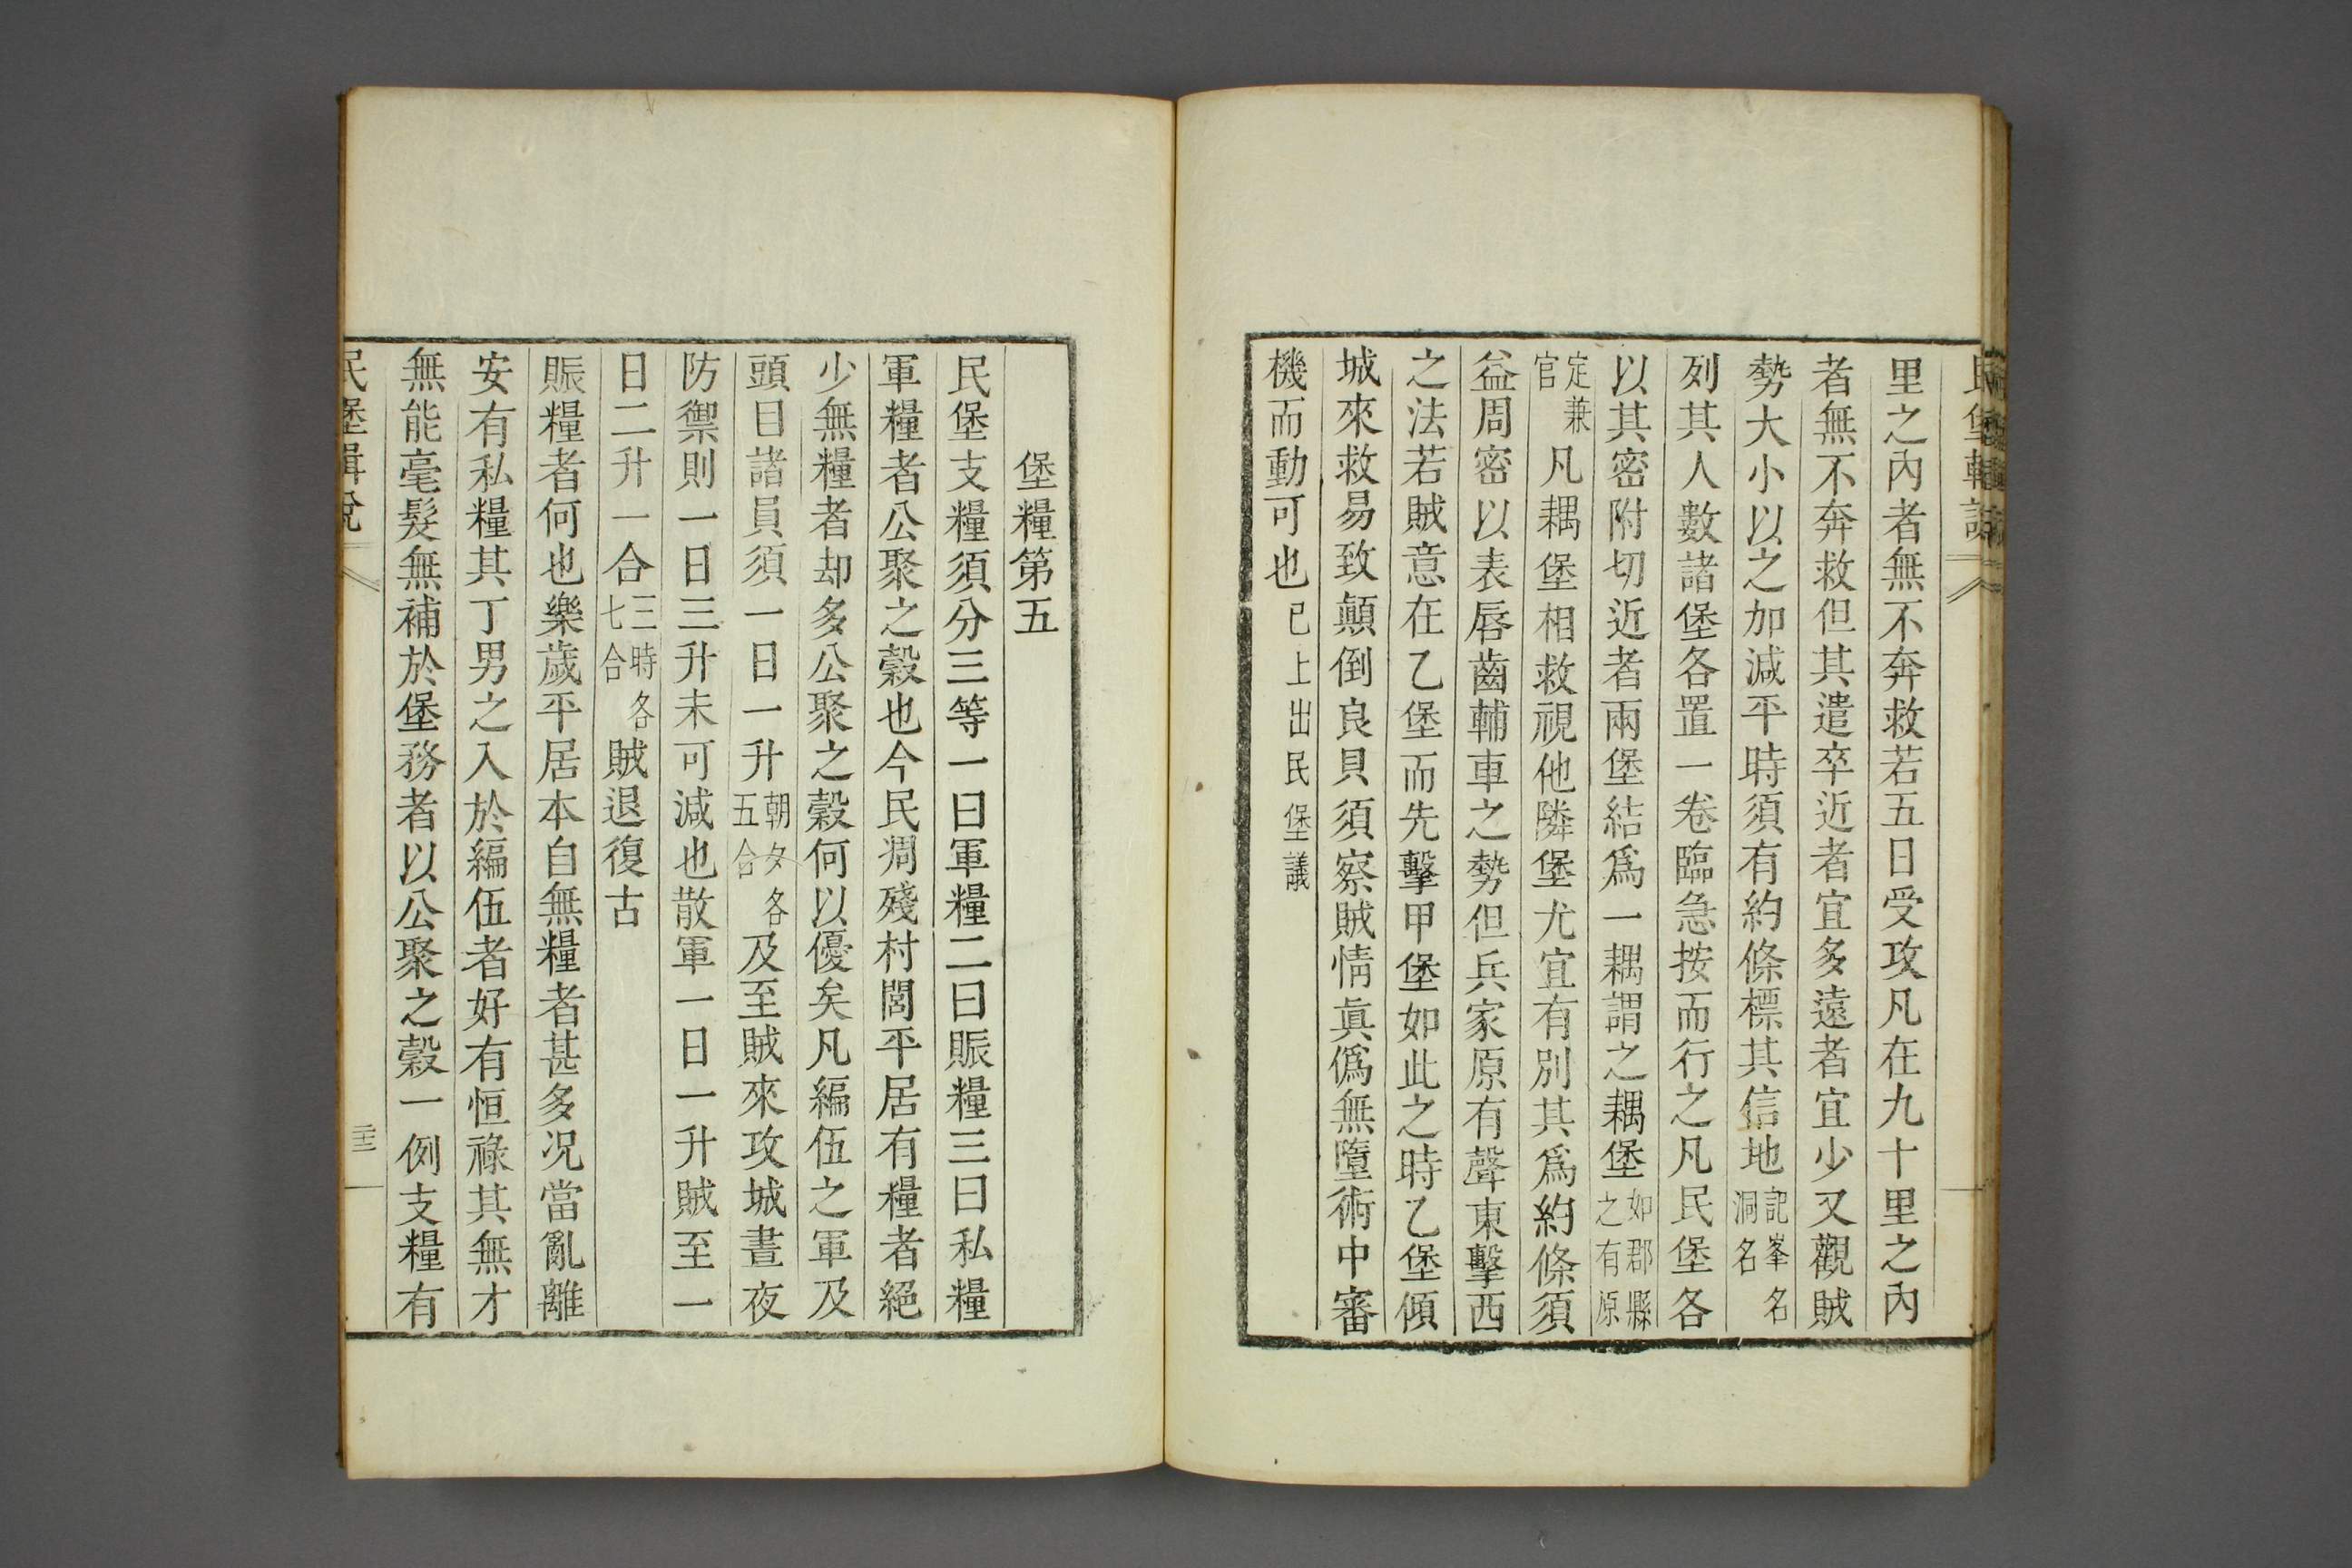 民堡輯說
里之內者無不奔救若五日受攻凡在九十里之內
者無不奔救但其遣卒近者宜多遠者宜少又觀賊
勢大小以之加減平時須有約條標其信地記峯名洞名
列其人數諸堡各置一卷臨急按而行之凡民堡各
以其密附切近者兩堡結爲一耦謂之耦堡如郡縣之有原
定兼官凡耦堡相救視他隣堡尤宜有別其爲約條須
益周密以表唇齒輔車之勢但兵家原有聲東擊西
之法若賊意在乙堡而先擊甲堡如此之時乙堡傾
城來救易致顛倒良貝須察賊情眞僞無墮術中審
機而動可也已上出民堡議
堡糧第五
民堡支糧須分三等一曰軍糧二曰賑糧三曰私糧
軍糧者公聚之穀也今民凋殘村閭平居有糧者絕
少無糧者却多公聚之穀何以優矣凡編伍之軍及
頭目諸員須一日一升朝夕各五合及至賊來攻城晝夜
防禦則一日三升未可減也散軍一日一升賊至一
日二升一合三時各七合賊退復古
賑糧者何也樂歲平居本自無糧者甚多况當亂離
安有私糧其丁男之入於編伍者好有恒祿其無才
無能毫髮無補於堡務者以公聚之穀一例支糧有
民堡輯說